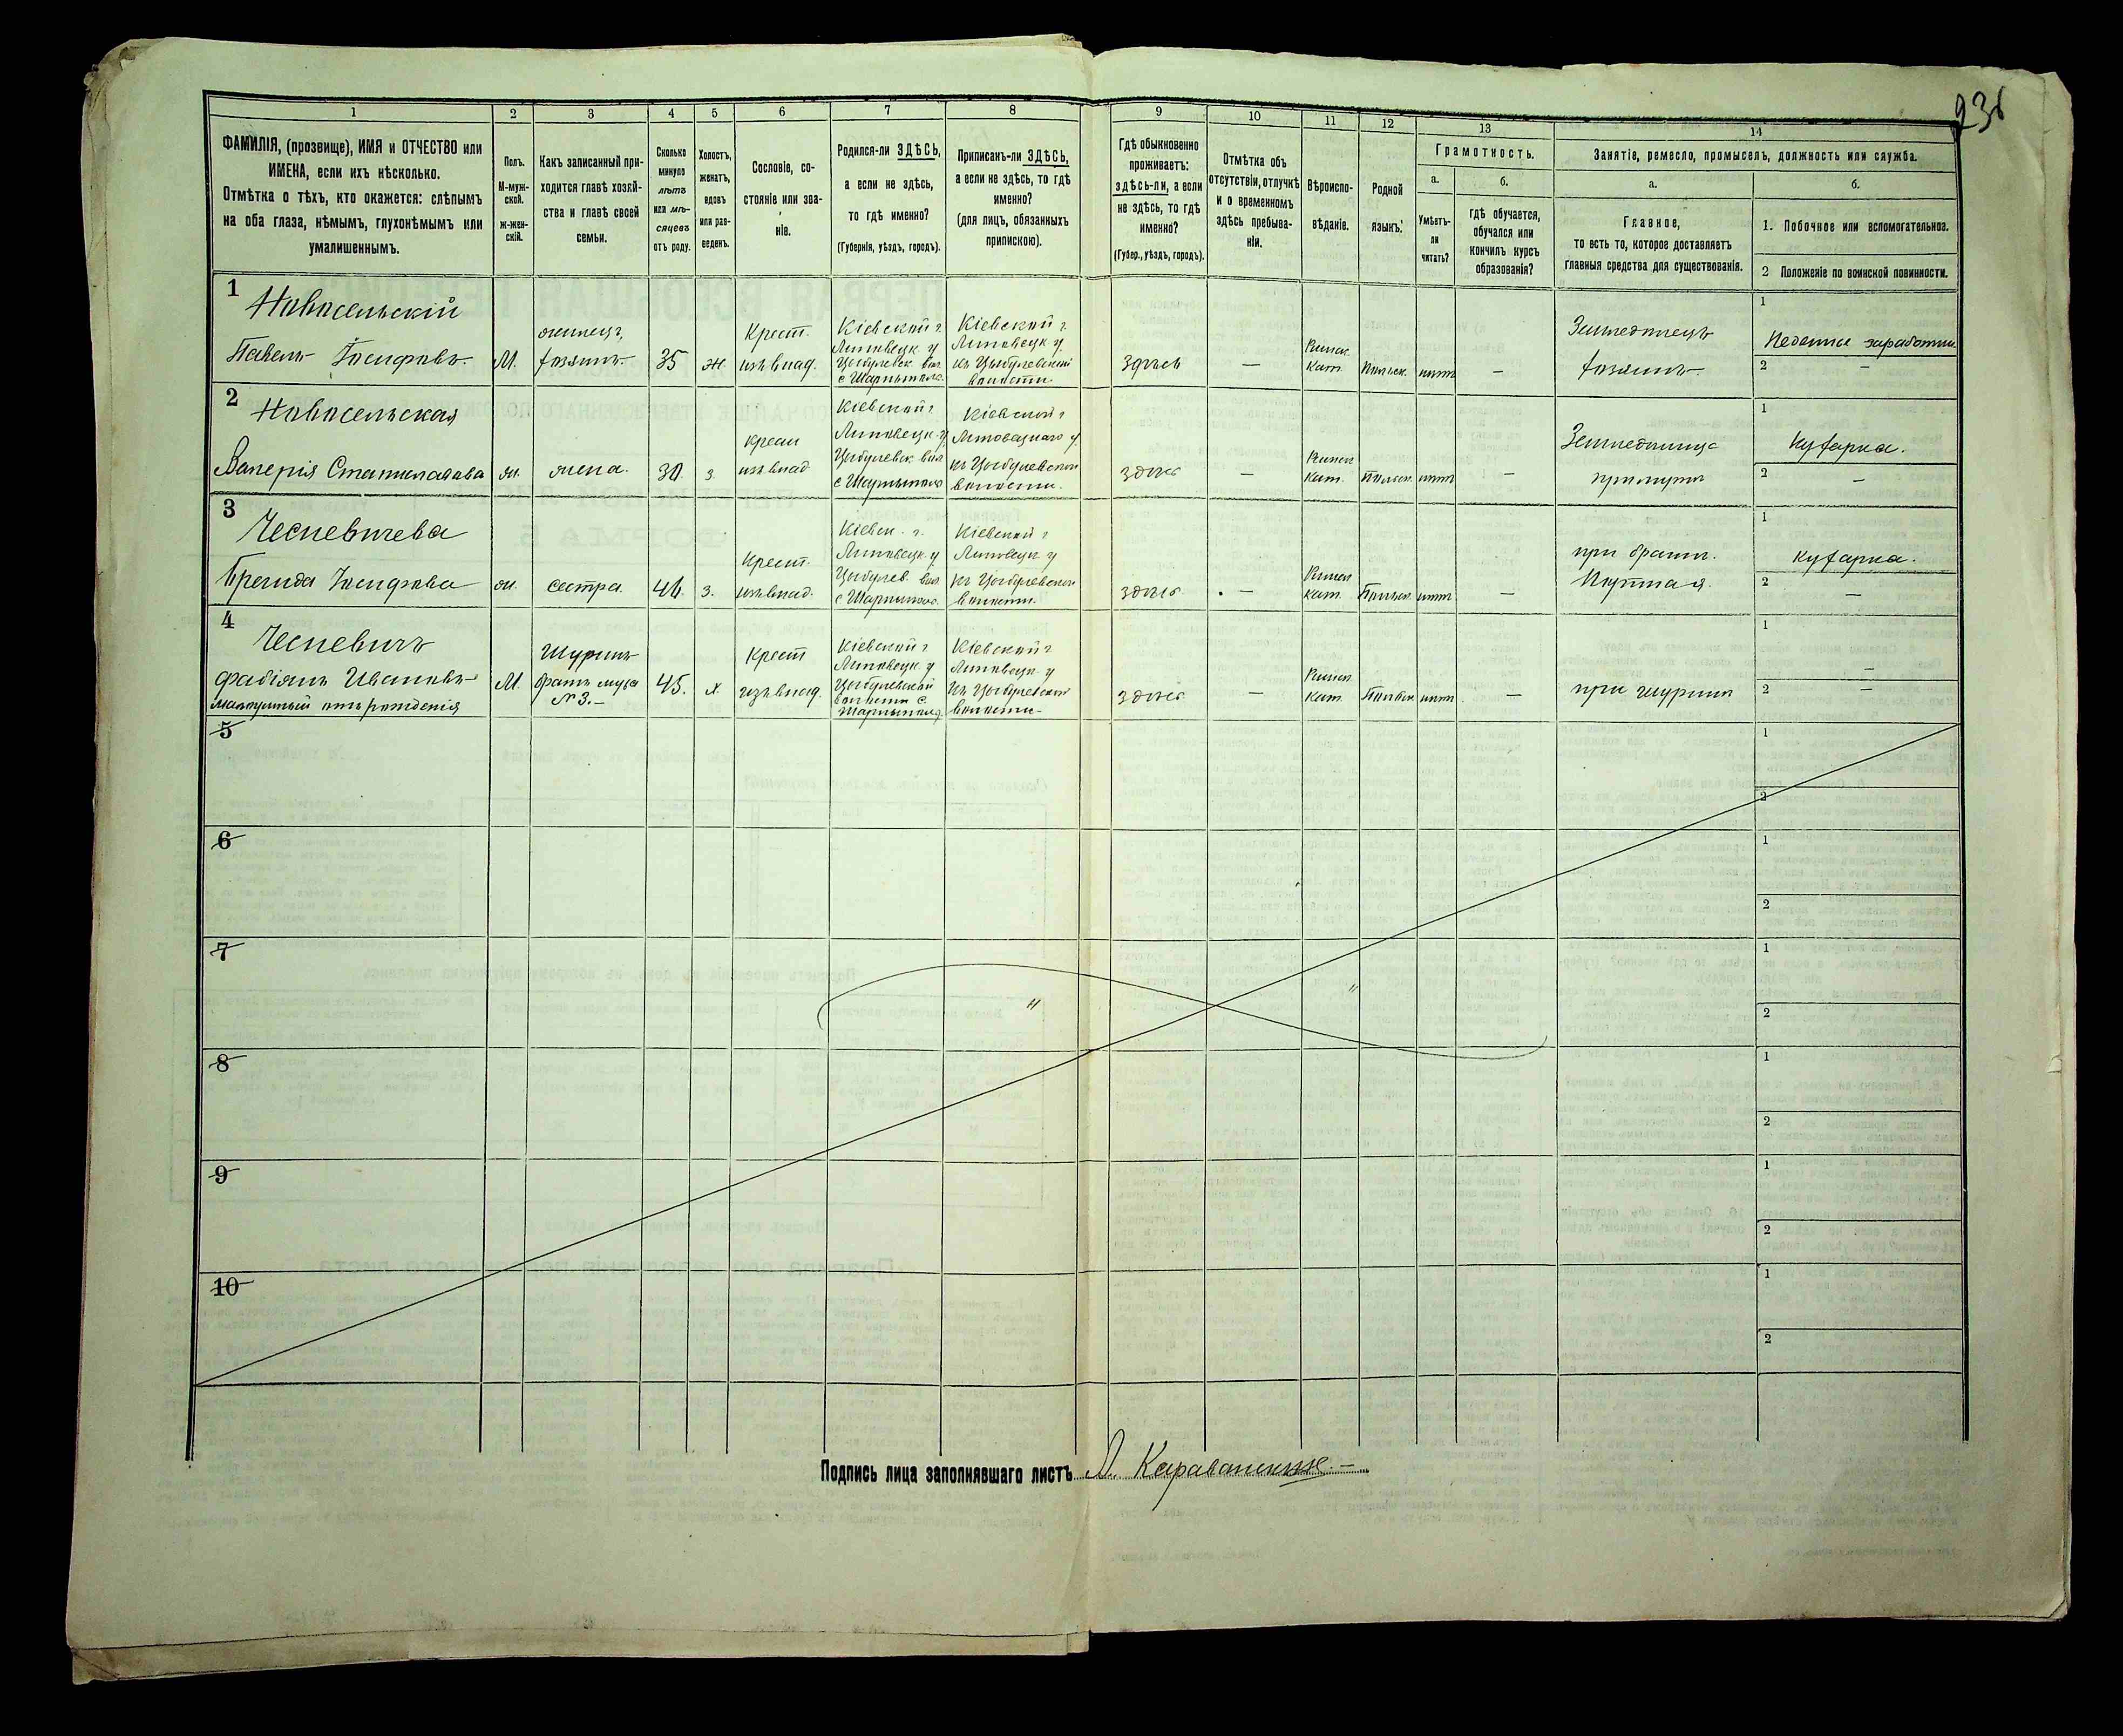 236
1
ФАМИЛІЯ, (прозвище), ИМЯ и ОТЧЕСТВО или
ИМЕНА, если ихъ нѣсколько.
Отмѣтка о тѣхъ, кто окажется: слѣпымъ
на оба глаза, нѣмымъ, глухонѣмымъ или
умалишеннымъ.
2
Полъ.
М-муж-
ской.
ж-жен-
скій.
3
Какъ записанный при-
ходится главѣ хозяй-
ства и главѣ своей
семьи.
4
Сколько
минуло
лѣтъ
или мѣ-
сяцевъ
отъ роду.
5
Холостъ,
женатъ,
вдовъ
или раз-
веденъ.
6
Сословіе, со-
стояніе или зва-
ніе.
7
Родился-ли ЗДѢСЬ,
а если не здѣсь,
то гдѣ именно?
(Губернія, уѣздъ, городъ).
8
Приписанъ-ли ЗДѢСЬ,
а если не здѣсь, то гдѣ
именно?
(для лицъ, обязанныхъ
припискою).
9
Гдѣ обыкновенно
проживаетъ:
здѣсь-ли, а если
не здѣсь, то гдѣ
именно?
(Губер., уѣздъ, городъ).
10
Отмѣтка объ
отсутствіи, отлучкѣ
и о временномъ
здѣсь пребыва-
ніи.
11
Вѣроиспо-
вѣданіе.
12
Родной
языкъ.
13
Грамотность.
а.
Умѣетъ-
ли
читать?
б.
Гдѣ обучается,
обучался или
кончилъ курсъ
образованія?
14
Занятіе, ремесло, промыселъ, должность или служба.
а.
Главное,
то есть то, которое доставляетъ
главныя средства для существованія.
б.
1. Побочное или вспомогательное.
2 Положеніе по воинской повинности.
1
Новосельскій
Павелъ Іосифовъ
М.
хозяинъ
35
ж.
Крест.
изъ влад.
Кіевской г.
Липовецк у
Цыбулевск. вол.
с Шарныполь
Кіевской г.
Липовецк у.
къ Цыбулевской
волости
здѣсь
—
Римск.
Кат.
Польск.
нѣтъ
—
Земледѣлецъ
хозяинъ
1
2
—
2
Новосельская
Валерія Станиславова
ж.
жена.
30
з.
крест
изъ влад
Кіевской г
Липовецк. у.
Цыбулевск вол
с Шарныполь
Кіевской г
Липовецкаго у.
къ Цыбулевской
волости.
здѣсь
—
Римск
Кат.
Польск.
нѣтъ
—
Земледѣлица
при мужѣ
1
Кухарка.
2
—
3
Чесневичева
Бригида Іосифова
ж.
сестра
46
з.
Крест.
изъ влад.
Кіевск. г.
Липовецк. у
Цыбулев. вол
с Шарныполь.
Кіевской г
Липовецк у
къ Цыбулевской
волости.
здѣсь
—
Римск
Кат.
Польск.
нѣтъ
—
при братѣ.
1
кухарка.
2
—
4
Чесневичъ
Фабіянъ Ивановъ
отъ рожденія
М.
Шуринъ
братъ мужа
№ 3.—
45.
х.
Крест
изъ влад.
Кіевской г
Липовецк. у
Цыбулевской
волости с.
Шарныполь
Кіевской г
Липовецк. у
къ Цыбулевской
волости—
здѣсь
—
Римск
Кат.
Польск
нѣтъ
—
при шуринѣ
1
—
2
—
5
1
2
6
1
2
7
1
2
8
1
2
9
1
2
10
1
2
Подпись лица заполнявшаго листъ